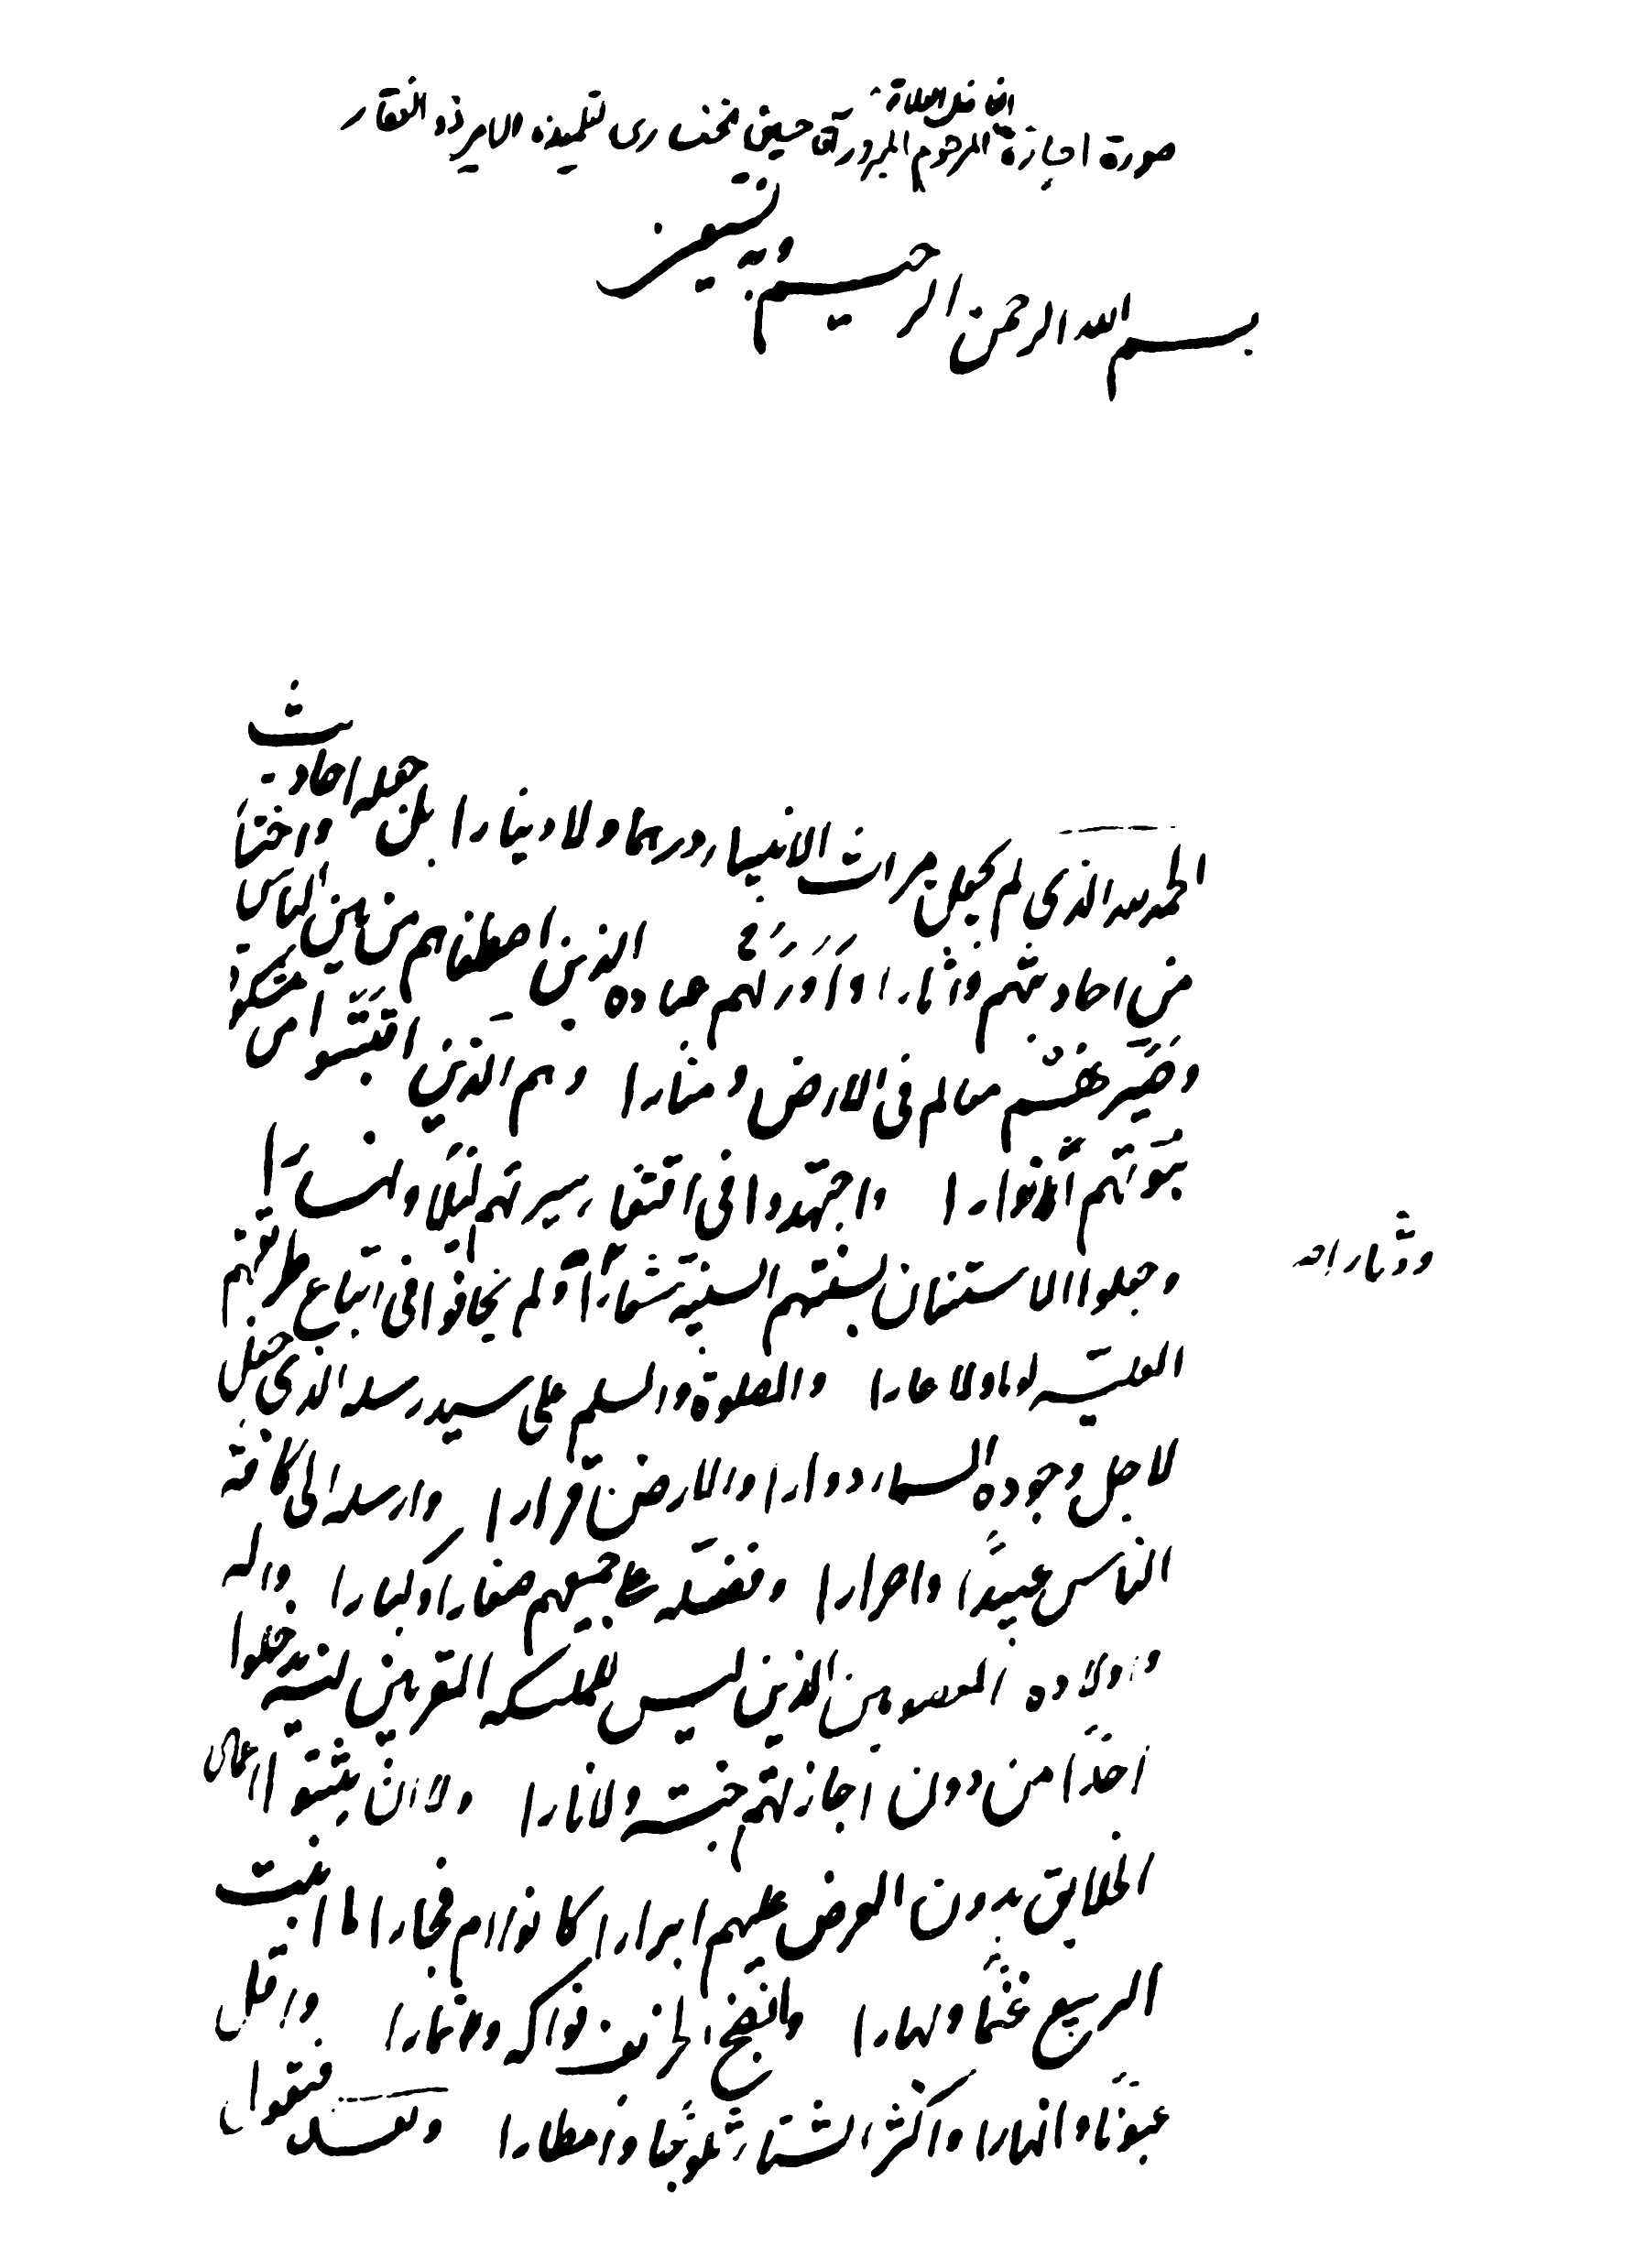 الفاضل العلامة
صورة اجازة المرحوم المبرور آقا حسين الخنساری لتلميذه الامير ذو الفقار
بسم الله الرحمن الرحيم وبه نستعين
الحمد لله الذی لم يجعل ميراث الانبياء درهما ولا دينارا بل جعله احاديث
من احاديثهم وآثارا واَورَثهم عباده الذين اصطفاهم من بين الناس واختارا
وصَيَّرهم معالم فی الارض ومنارا وهم الذين اقتَبَسُوا من مشكوة
نبوّتهم أنوارا واجتهدوا فی اقتفاء سيرتهم ليلًا ونهَارًا
وجعلوا الاستنان بسنتهم السنيّة شعارًا ولم يخافوا فی اتباع طريقتهم
ودثارا
العليّه لوما ولا عارا والصلوة والسلم علی سيد رسله الذی جعل
لاجل وجوده السماء دوارا والارض قرارا وارسله الی كافة
الناس عبيدًا واحرارا وفضّله علی جميعهم صغارا وكبارا وآله
واولاده المعصومين الذين ليس للملئكه المقربين ان يدخلوا
احَدًا من دون اجازتهم جنّة ولا نارا ولا ان يثبتوا اعمال
الخلايق بدون العرض عليهم ابرارا كانوا ام فجارا ما انبت
الربيع وبهارا وانضج الخريف فواكه واثمارا واقل
عيونا وانهارا واكثر الشتاء ثلوجًا وامطارا وبعد فيقول